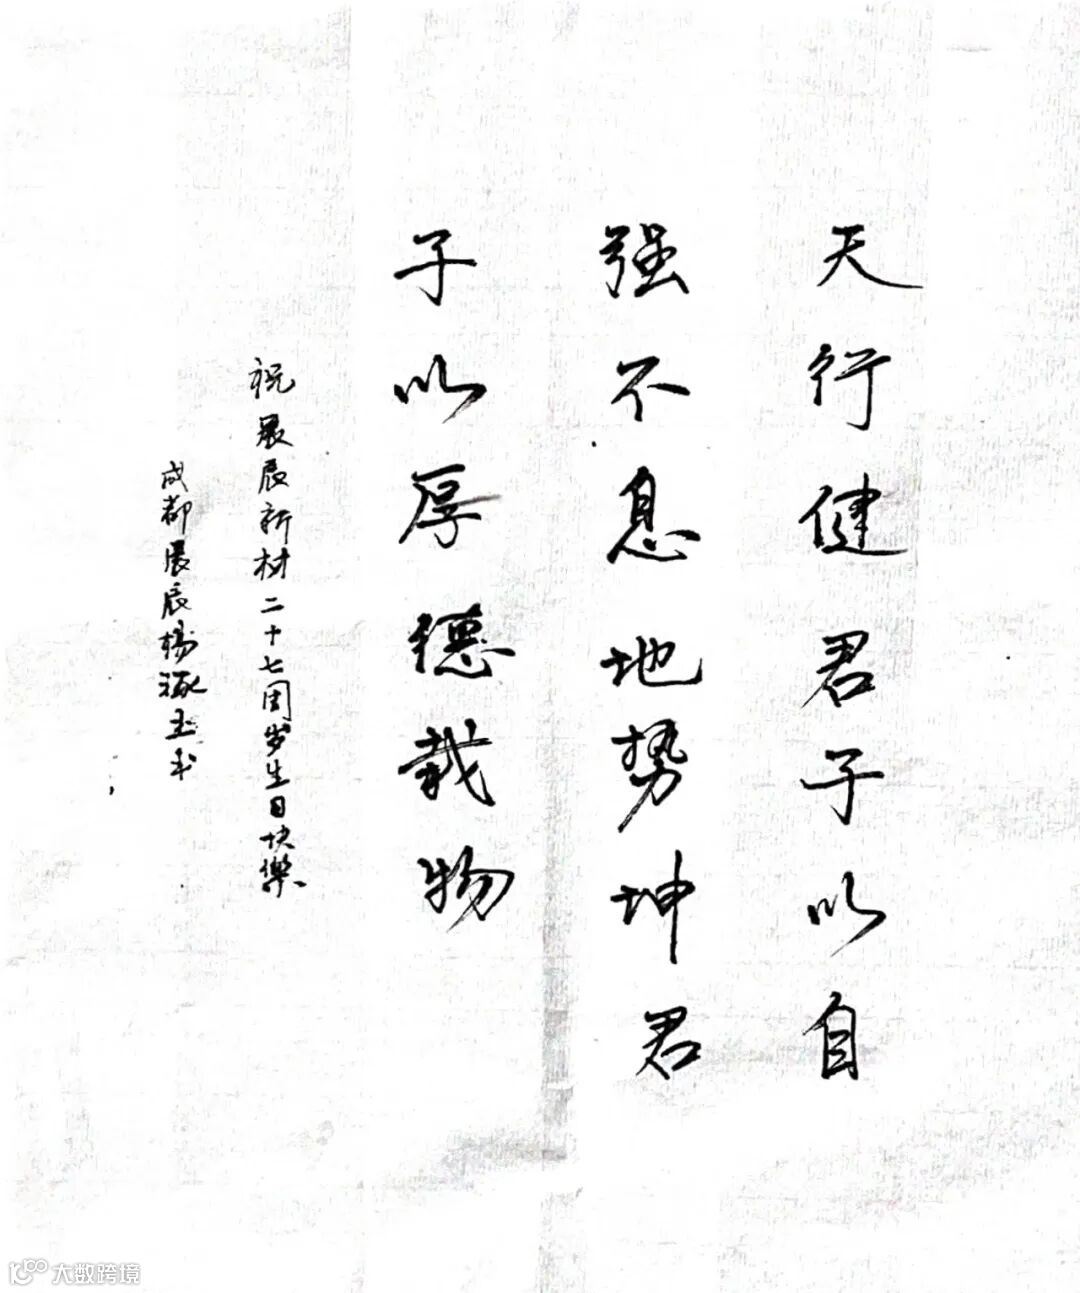 天行健君子以自
强不息地势坤君
子以厚德载物
祝展辰新材二十七周岁生日快樂
成都展辰楊涿玉书
大数跨境